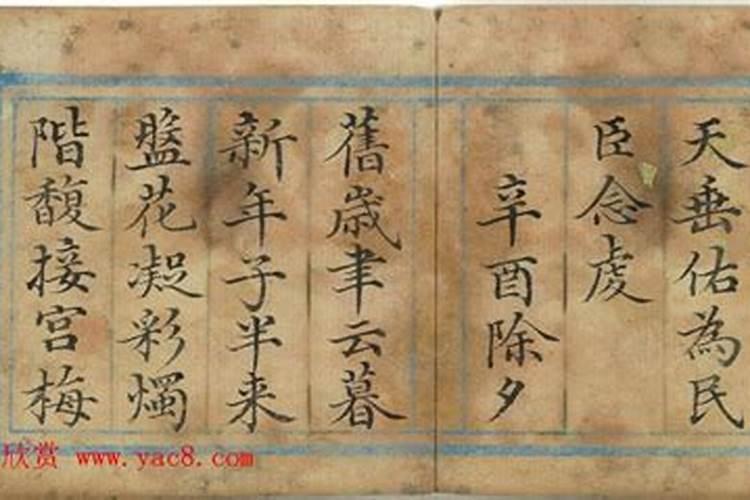 天垂佑為民
臣念虔
辛酉除夕
舊歲聿云暮
新年子半来
盤花凝彩燭
階馥接宮梅
欣赏 www.yac8.com